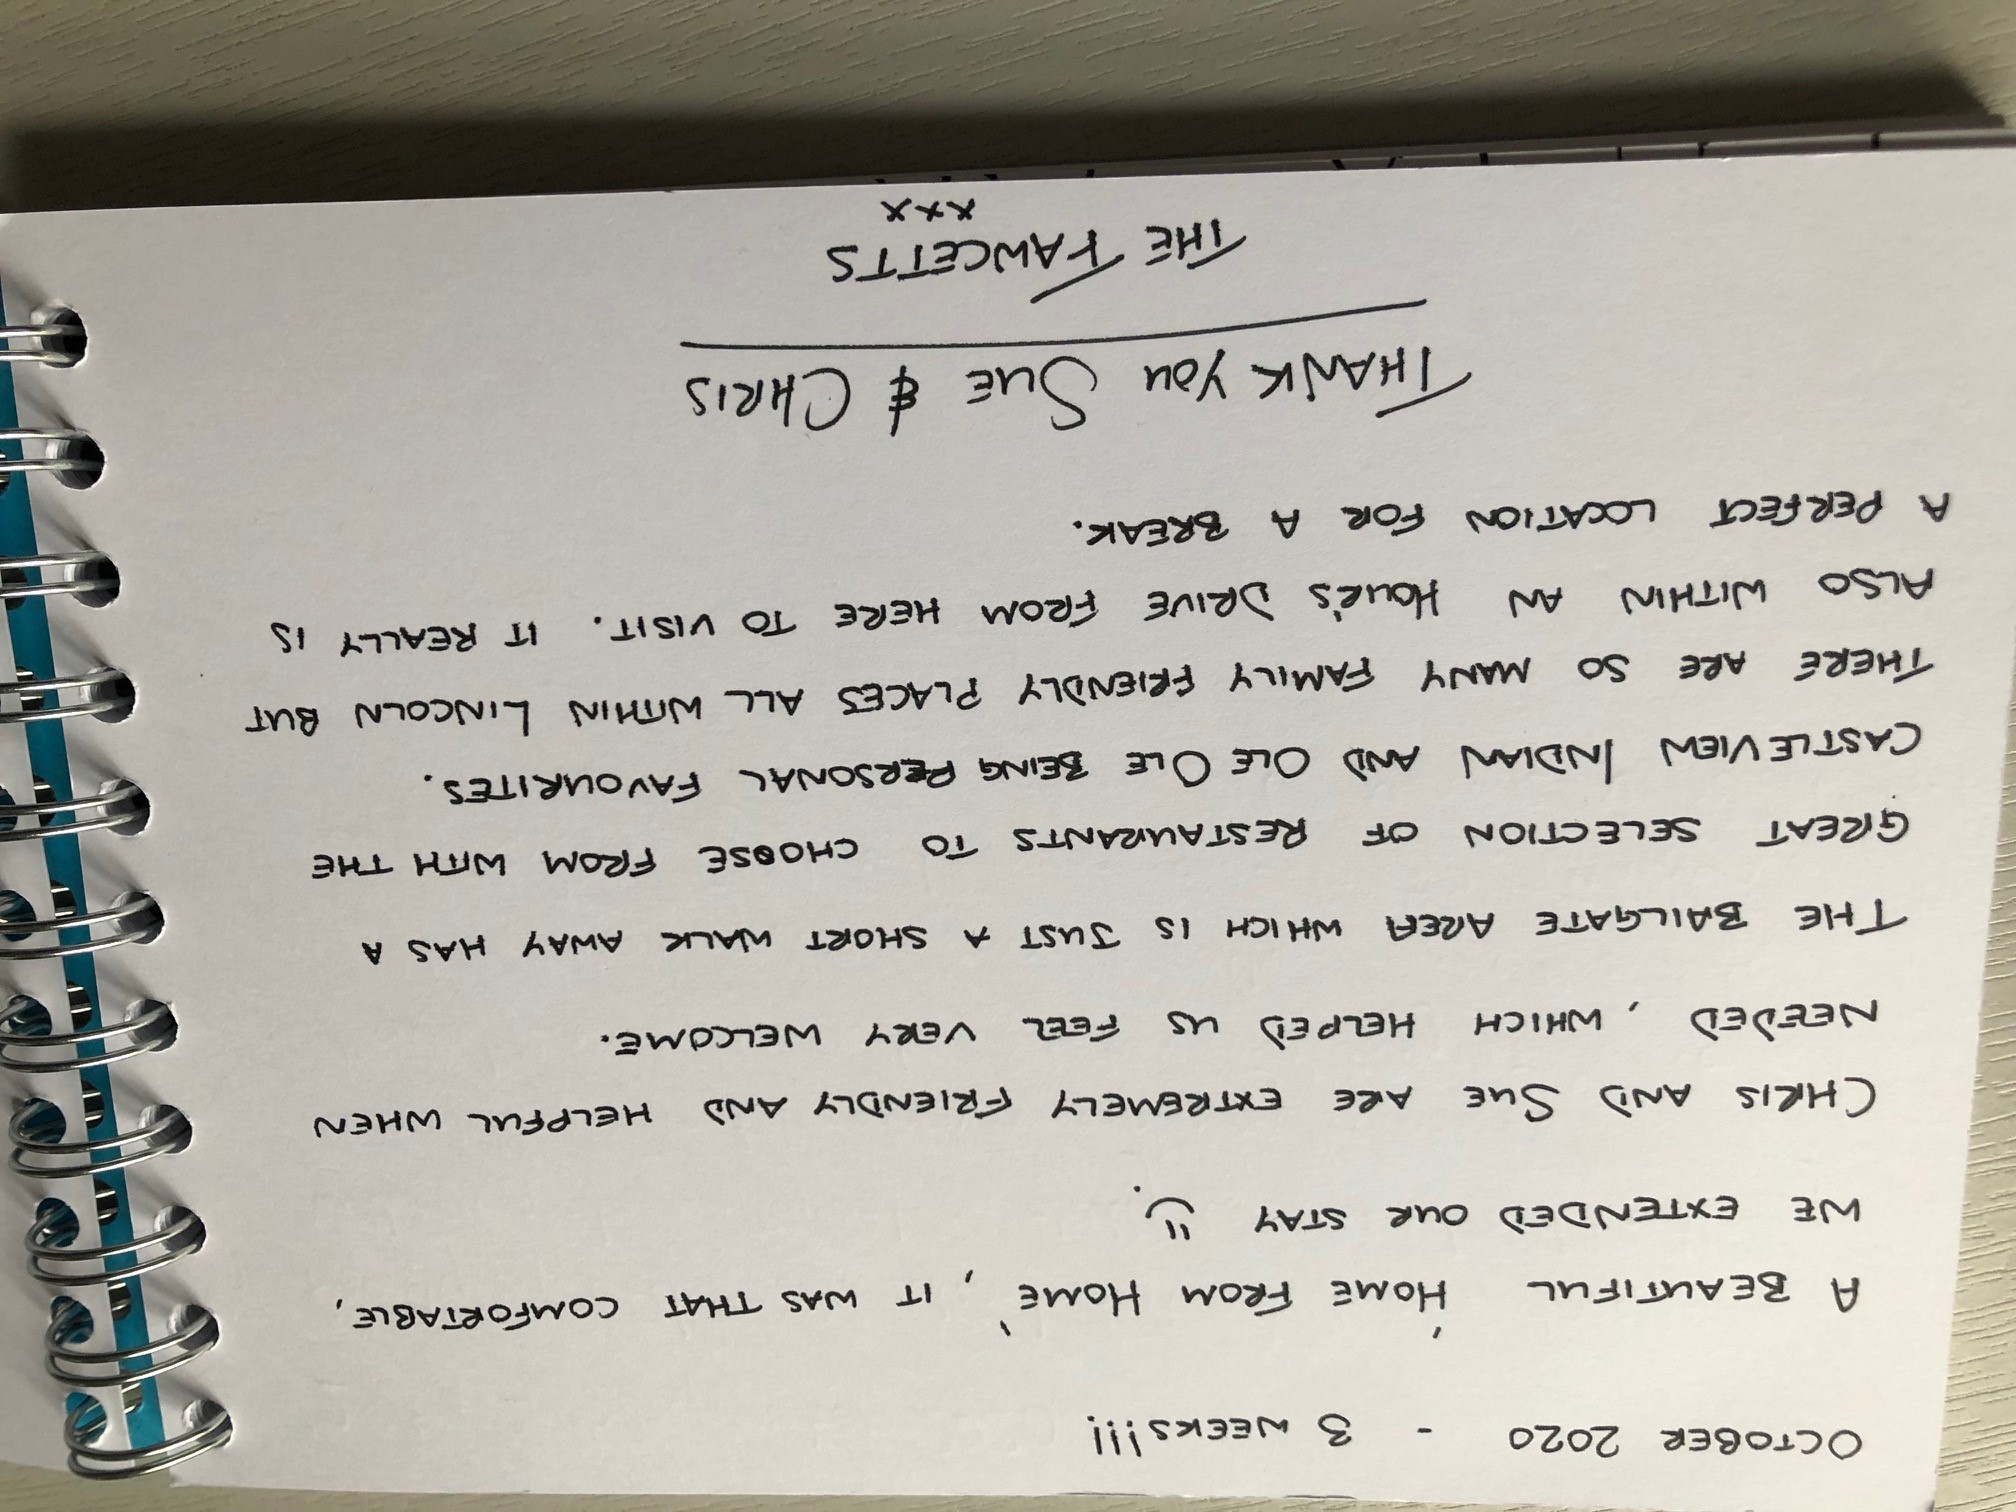 OCTOBER 2020 - 3 WEEKS!!!
A BEAUTIFUL 'HOME FROM HOME', IT WAS THAT COMFORTABLE,
WE EXTENDED OUR STAY ツ.
CHRIS AND SUE ARE EXTREMELY FRIENDLY AND HELPFUL WHEN
NEEDED, WHICH HELPED US FEEL VERY WELCOME.
THE BAILGATE AREA WHICH IS JUST A SHORT WALK AWAY HAS A
GREAT SELECTION OF RESTAURANTS TO CHOOSE FROM WITH THE
CASTLEVIEW INDIAN AND OLE OLE BEING PERSONAL FAVOURITES.
THERE ARE SO MANY FAMILY FRIENDLY PLACES ALL WITHIN LINCOLN BUT
ALSO WITHIN AN HOUR'S DRIVE FROM HERE TO VISIT. IT REALLY IS
A PERFECT LOCATION FOR A BREAK.
THANK YOU SUE & CHRIS
THE FAWCETTS
xxx